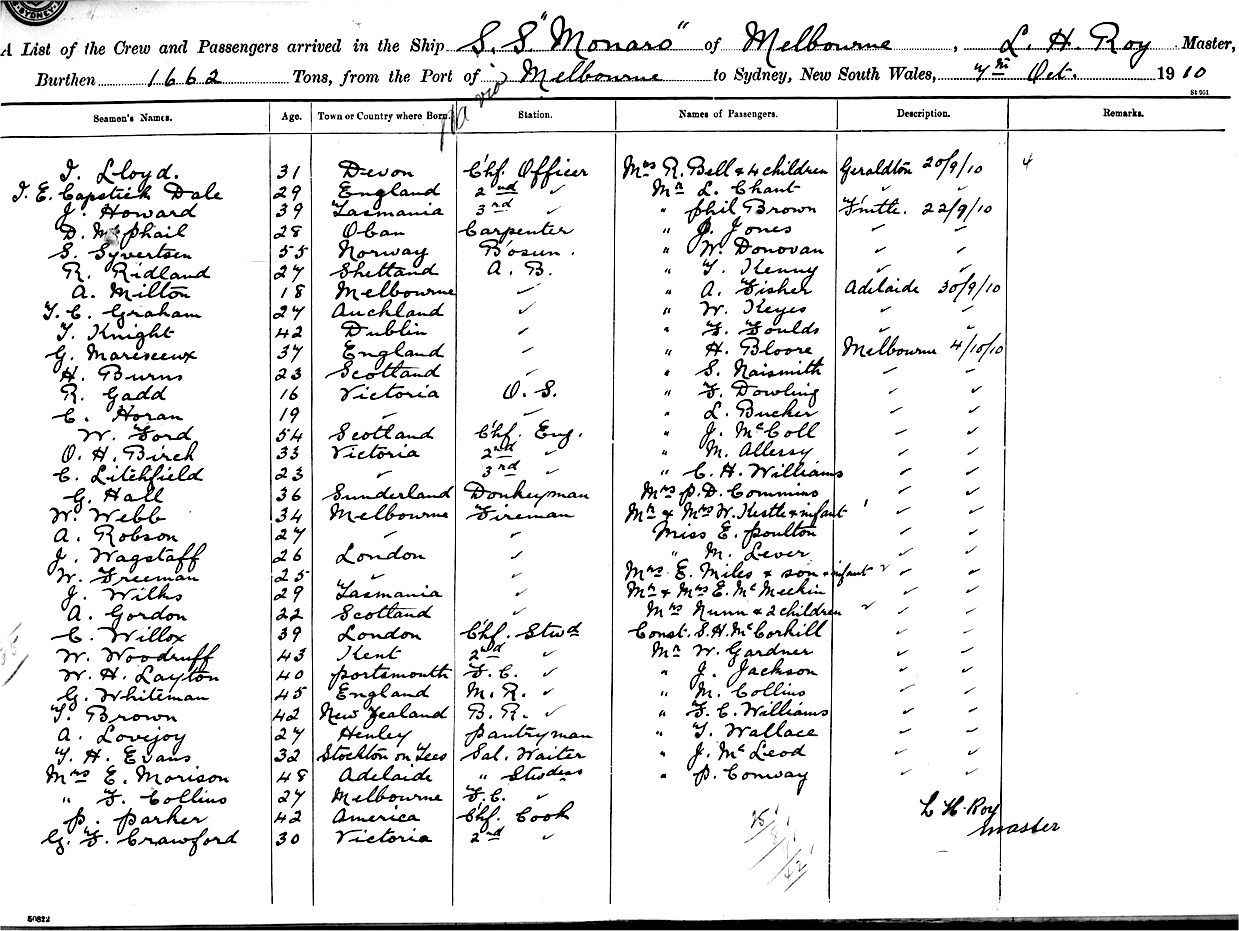 SYDNEY
A List of the Crew and Passengers arrived in the Ship S.S "Monaro" of Melbourne, L. H. Roy Master,
Burthen 1662 Tons, from the Port of Melbourne to Sydney, New South Wales, 7th Oct. 1910
W/A via
St 951
Seamen's Names. Age. Town or Country where Born. Station. Names of Passengers. Description. Remarks.
I. Lloyd. 31 Devon Chf. Officer Mrs R. Bell & 4 children Geraldton 20/9/10 4
I. E. Capstick Dale 29 England 2nd ✓ Mr L. Chant ✓ ✓
J. Howard 39 Tasmania 3rd ✓ " Phil Brown F'mtle. 22/9/10
D. McPhail 28 Oban Carpenter " J. Jones ✓ ✓
S. Syvertsen 55 Norway Bosun. " W. Donovan ✓ ✓
R. Ridland 27 Shetland A. B. " T. Kenny ✓ ✓
A. Milton 18 Melbourne ✓ " A. Fisher Adelaide 30/9/10
T. C. Graham 27 Auckland ✓ " W. Keyes ✓ ✓
T. Knight 42 Dublin ✓ " F. Foulds ✓ ✓
G. 37 England ✓ " H. Bloore Melbourne 4/10/10
H. Burns 23 Scotland ✓ " S. Naismith ✓ ✓
R. Gadd 16 Victoria O. S. " F. Dowling ✓ ✓
C. Horan 19 ✓ ✓ " L. Bucher ✓ ✓
W. Ford 54 Scotland Chf. Eng. " J. McColl ✓ ✓
O. H. Birch 33 Victoria 2nd ✓ " M. Allessy ✓ ✓
C. Litchfield 23 ✓ 3rd ✓ " C. H. Williams ✓ ✓
G. Hall 36 Sunderland Donkeyman Mrs P. D. Commins ✓ ✓
W. Webb 34 Melbourne Fireman Mr & Mrs W. Kestle & infant 1 ✓ ✓
A. Robson 27 ✓ ✓ Miss E. Poulton ✓ ✓
J. Wagstaff 26 London ✓ " M. Lever ✓ ✓
W. Freeman 25 ✓ ✓ Mrs E. Miles & son & infant 2 ✓ ✓
J. Wilks 29 Tasmania ✓ Mr & Mrs E. McMeekin ✓ ✓
A. Gordon 22 Scotland ✓ Mrs Nunn & 2 children 2 ✓ ✓
C. Willox 39 London Chf. Stwd Const. S. H. McCorkill ✓ ✓
W. Woodruff 43 Kent 2nd ✓ Mr W. Gardner ✓ ✓
W. H. Layton 40 Portsmouth F. C. ✓ " J. Jackson ✓ ✓
G. Whiteman 45 England M. R. ✓ " M. Collins ✓ ✓
T. Brown 42 New Zealand B. R. ✓ " F. C. Williams ✓ ✓
A. Lovejoy 27 Henley Pantryman " T. Wallace ✓ ✓
T. H. Evans 32 Stockton on Tees Sal. Waiter " J. McLeod ✓ ✓
Mrs E. Morison 48 Adelaide " Stwdess " P. Conway ✓ ✓
" F. Collins 27 Melbourne F. C. ✓
P. Parker 42 America Chf. Cook L H. Roy
G. F. Crawford 30 Victoria 2nd ✓ Master
50822